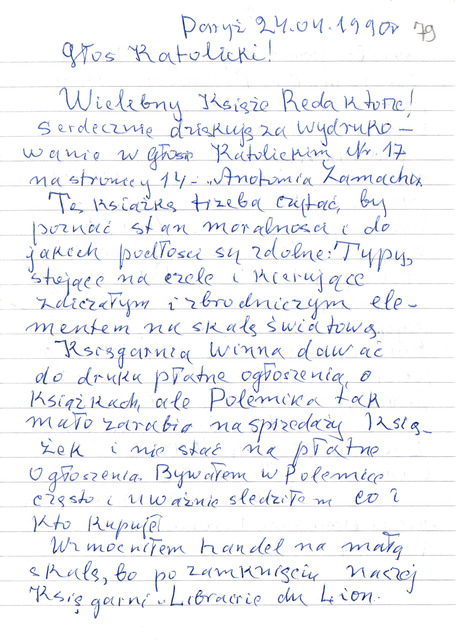 Paryż 24.04.1990r 79
Głos Katolicki!
Wielebny Księże Redaktorze!
Serdecznie dziękuję za wydruko-
wanie w Głosie Katolickim Nr. 17
na stronicy 14 - „Anatomia Zamachu„
Tę książkę trzeba czytać, by
poznać stan moralności i do
jakich podłości są zdolne: Typy,
stojące na czele i kierujące
zdziczałym i zbrodniczym ele-
mentem na skalę światową.
Księgarnia winna dawać
do druku płatne ogłoszenia o
książkach, ale Polemika tak
mało zarabia na sprzedaży ksią-
żek i nie stać na płatne
ogłoszenia. Bywałem w Polemice
często i uważnie śledziłem co i
kto kupuje.
Wzmocniłem handel na małą
skalę, bo po zamknięciu naszej
Księgarni „Librairie du Lion.